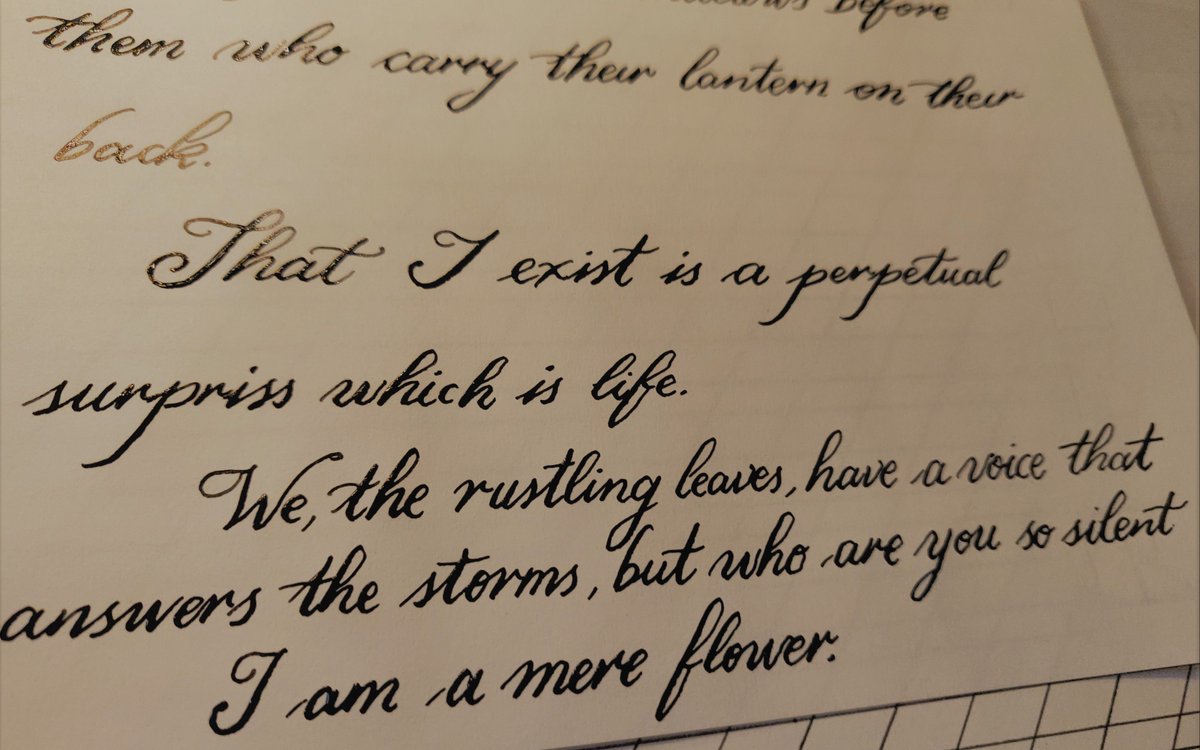 before
them who carry their lantern on their
back.
That I exist is a perpetual
surpriss which is life.
We, the rustling leaves, have a voice that
answers the storms, but who are you so silent
I am a mere flower.